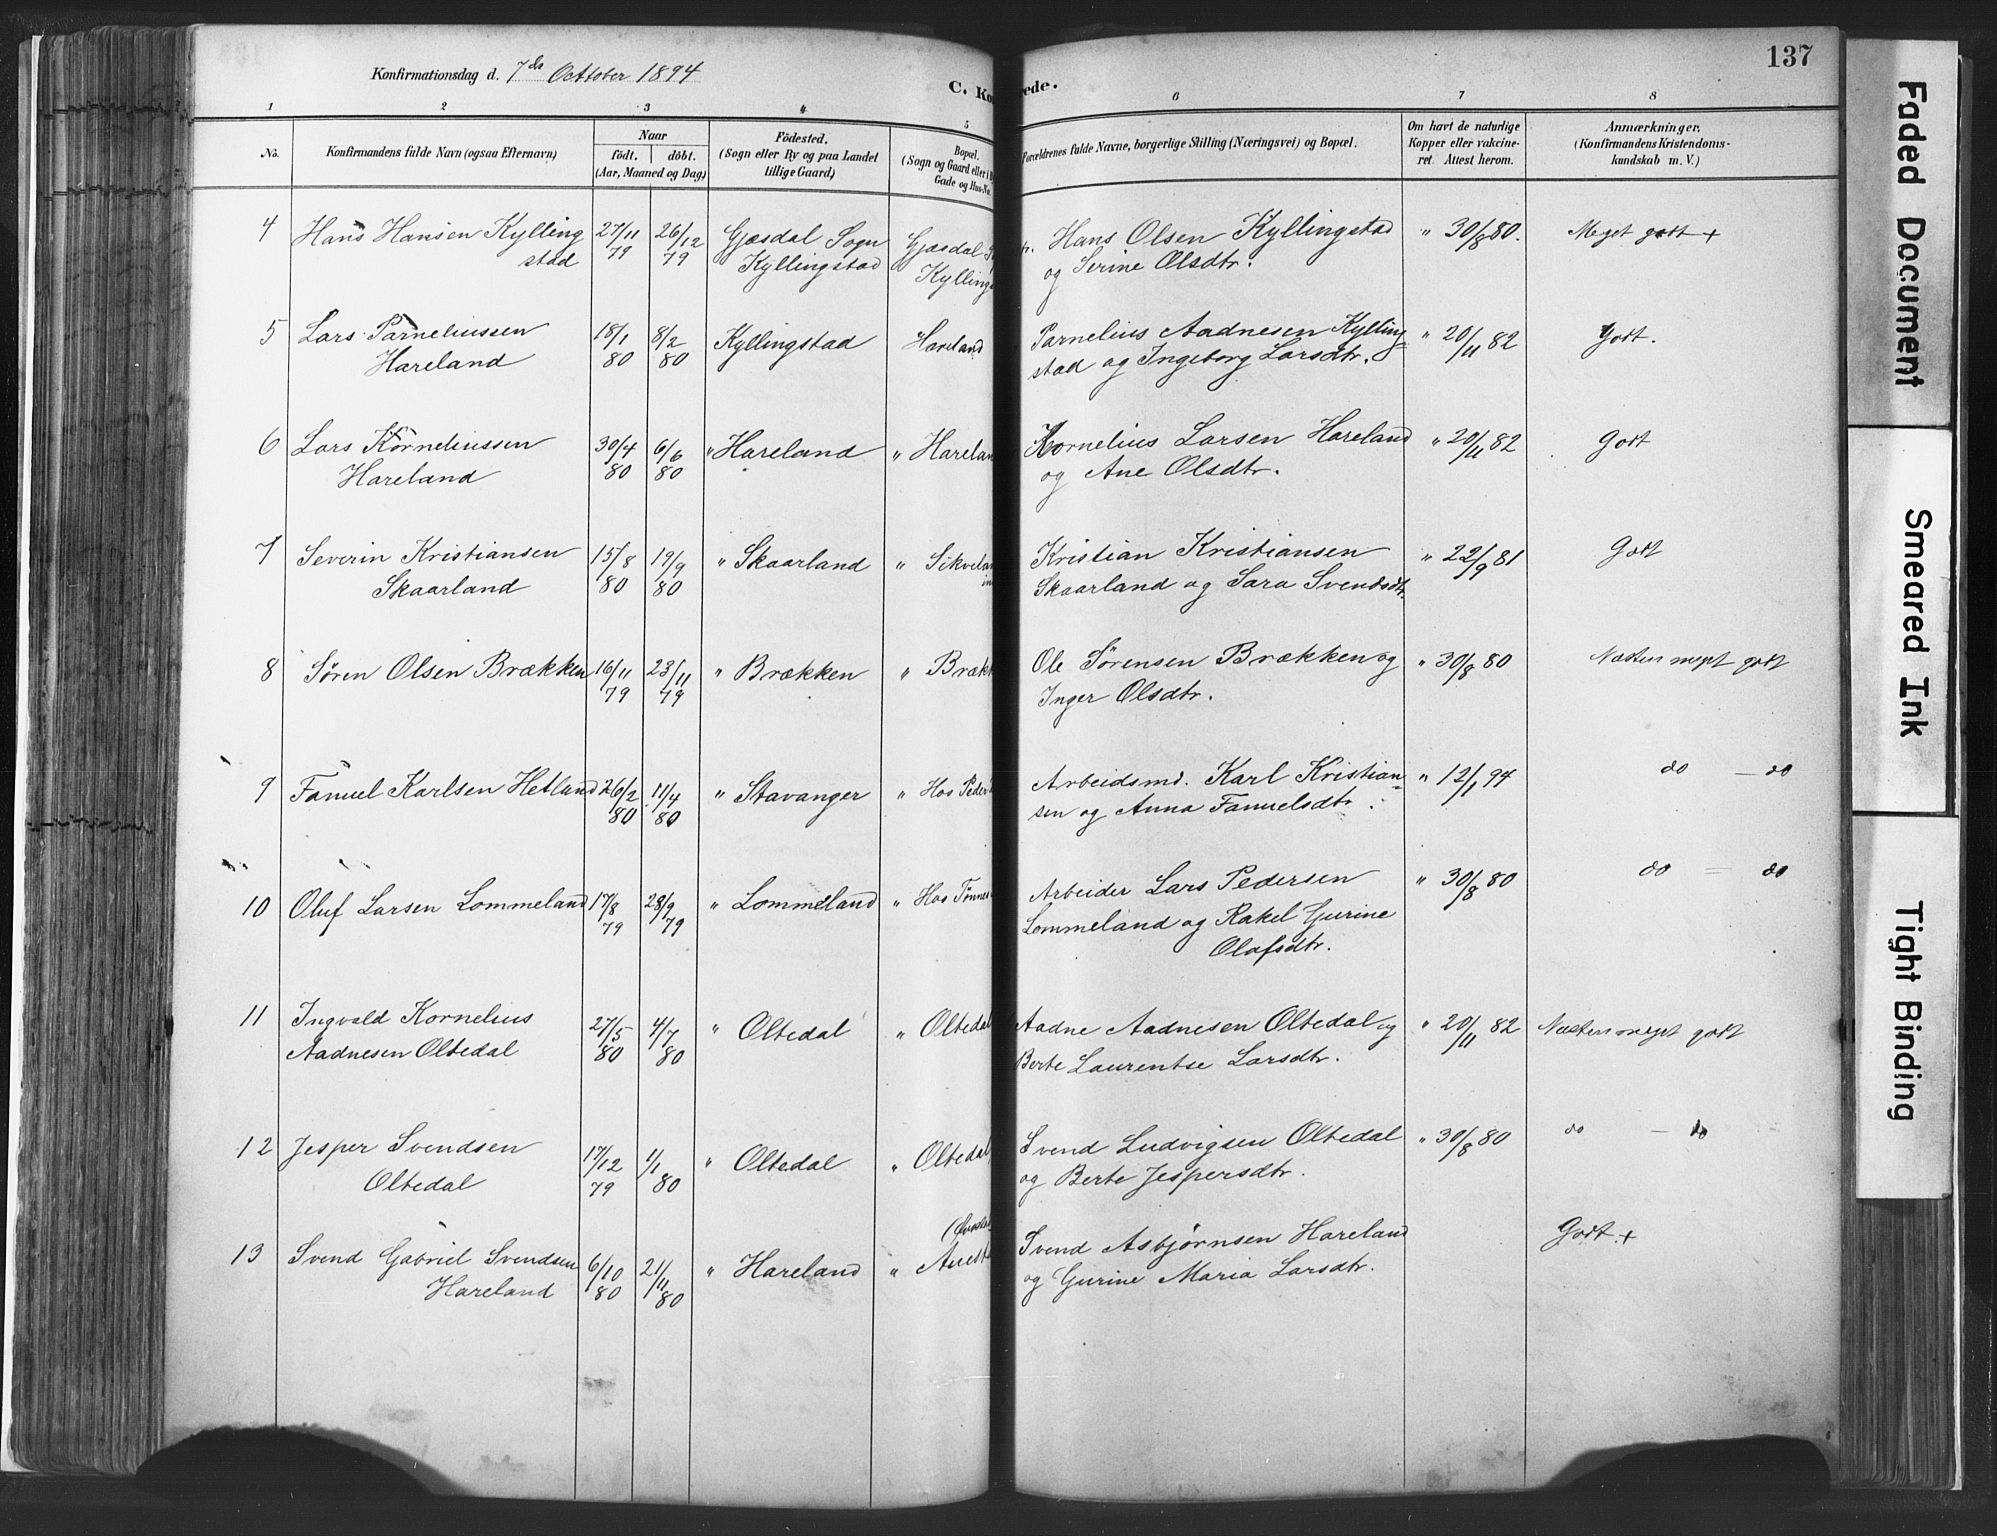 Konfirmationsdag d. 7de October 1894
C. Ko
rede.
137
1 2 3 4 5 6 7 8
No.
Konfirmandens fulde Navn (ogsaa Efternavn)
Naar
födt. döbt.
(Aar, Maaned og Dag)
Födested.
(Sogn eller By og paa Landet
tillige Gaard)
Bopæl.
(Sogn og Gaard eller i B
Gade og Hus-No.
Forældrenes fulde Navne, borgerlige Stilling (Næringsvei) og Bopæl.
Om havt de naturlige
Kopper eller vakcine-
ret. Attest herom.
Anmærkninger.
(Konfirmandens Kristendoms-
kundskab m. V.)
4 Hans Hansen Kylling 27/11 26/12 Gjæsdal Sogn Gjæsdal Hans Olsen Kyllingstad " 30/8 80. Meget godt +
stad 79 79 Kyllingstad Kylling og Serine Olsdtr.
5 Lars Parneliussen 18/1 8/2 Kyllingstad Hareland Parnelius Aadnesen Kylling= " 20/11 82 Godt.
Hareland 80 80 stad og Ingeborg Larsdtr.
6 Lars Korneliussen 30/4 6/6 " Hareland " Harelan Kornelius Larsen Hareland " 20/11 82 Godt
Hareland 80 80 og Ane Olsdtr.
7 Severin Kristiansen 15/8 19/9 " Skaarland " Sikvelan Kristian Kristiansen " 22/9 81 Godt
Skaarland 80 80 in Skaarland og Sara Svendsdtr.
8 Søren Olsen Brækken 16/11 23/11 " Brækken " Brækk Ole Sørensen Brækken og " 30/8 80 Næsten meget godt
79 79 Inger Olsdtr.
9 Fanuel Karlsen Hetland 26/2 11/4 " Stavanger " Hos Peder Arbeidsmd. Karl Kristian= " 12/1 94 do — do
80 80 sen og Anna Fanuelsdtr.
10 Oluf Larsen Lommeland 17/8 28/9 " Lommeland " Hos Tønnes Arbeider Lars Pedersen " 30/8 80 do = do
79 79 Lommeland og Rakel Gurine
Olafsdtr.
11 Ingvald Kornelius 27/5 4/7 " Oltedal " Oltedal Aadne Aadnesen Oltedal og " 20/11 82 Næsten meget godt
Aadnesen Oltedal 80 80 Berte Laurentse Larsdtr.
12 Jesper Svendsen 17/12 1/1 " Oltedal " Oltedal Svend Ludvigsen Oltedal " 30/8 80 do — do
Oltedal 79 80 og Berte Jespersdtr.
13 Svend Gabriel Svendsen 6/10 21/11 " Hareland " Svend Asbjørnsen Hareland Godt. +
Hareland 80 80 og Gurine Maria Larsdtr.
Faded Document
Smeared Ink
Tight Binding